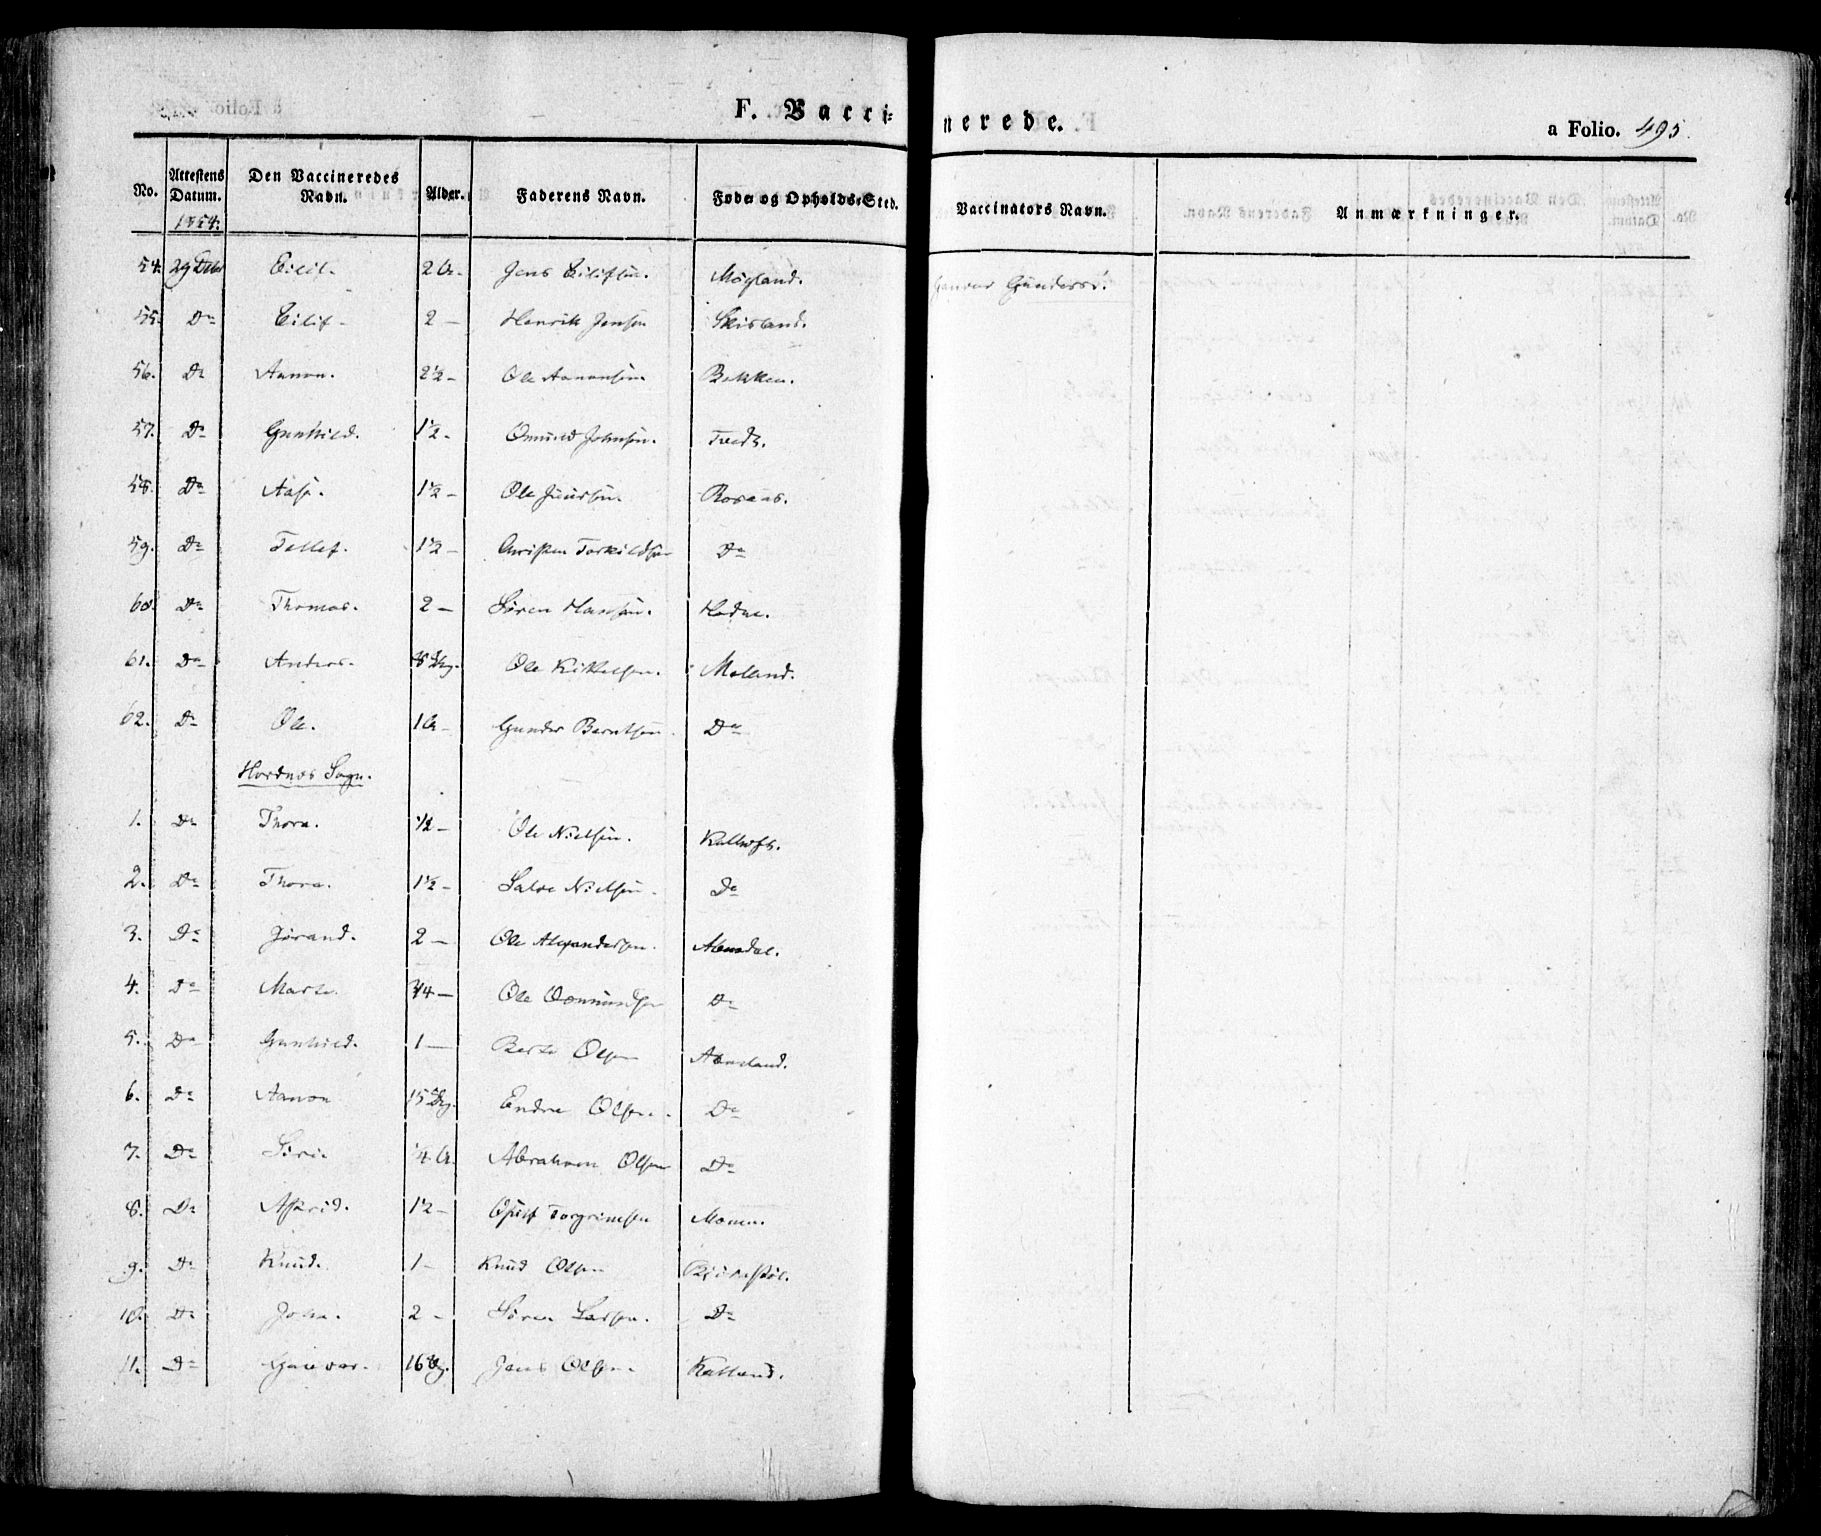 F. Vacci- nerede. a Folio. 495.
No. Attestens Datum. Den Vaccineredes Navn. Alder. Faderens Navn. Føde og Opholds-Sted. Vaccinators Navn. Anmærkninger.
1854.
54. 29 Eilif. 2 Jens Eilifsen. Møgland. Gunders.
55. Do Eilif 2 — Henrik Jensen Skisland.
56. Do Aanon. 2½ — Ole Aanonsen Bakken.
57. Do Gunhild. 1½ - Omund Johnsen. Tvedt.
58. Do Aase. 1½ — Ole Rosaas.
59. Do Tellef. 1½ — Christen Torkildsen Do
60. Do Thomas. 2 — Søren Hansen. Hodne.
61. Do Anders. Ole Kittelsen. Moland.
62. Do Ole. 1 Gunder Berntsen. Do
Hordnes Sogn.
1. Do Thora. ½ — Ole Nielsen.
2. Do Thora. 1½ - Salve Nielsen. Do
3. Do Jørand. 2 — Ole Alexandersen.
4. Do Marte ¾ — Ole Do
5. Do Gunhild. 1 — Olsen Abusland.
6. Do Aanon 15 Endre Olsen. Do
7. Do Siri. ¼ Abraham Olsen Do
8. Do Astrid. 1½ — Torgrimsen
9. Do Knud. 1 — Knud Olsen
10. Do John. 2 — Søren Larsen. Do
11. Do Gunvor. 16 Jens Olsen. Kalland.